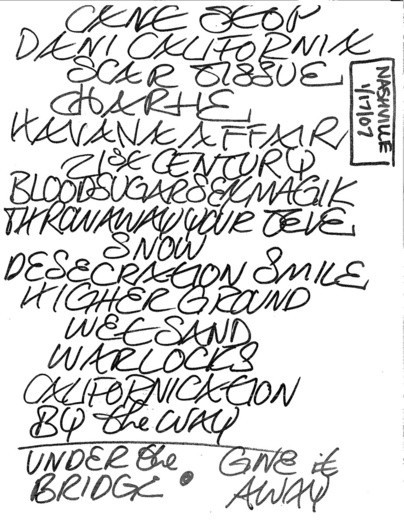 CANE STOP
DANI CALIFORNIA
SCAR TISSUE
CHARLIE
HAVANA AFFAIR
21st CENTURY
BLOODSUGARSEXMAGIK
THROWAWAYYOUR TEVE
SNOW
DESECRATION SMILE
HIGHER GROUND
WET SAND
WARLOCKS
CALIFORNICATION
BY the WAY
UNDER the
BRIDGE •
GIVE it
AWAY
NASHVILLE
1/17/07